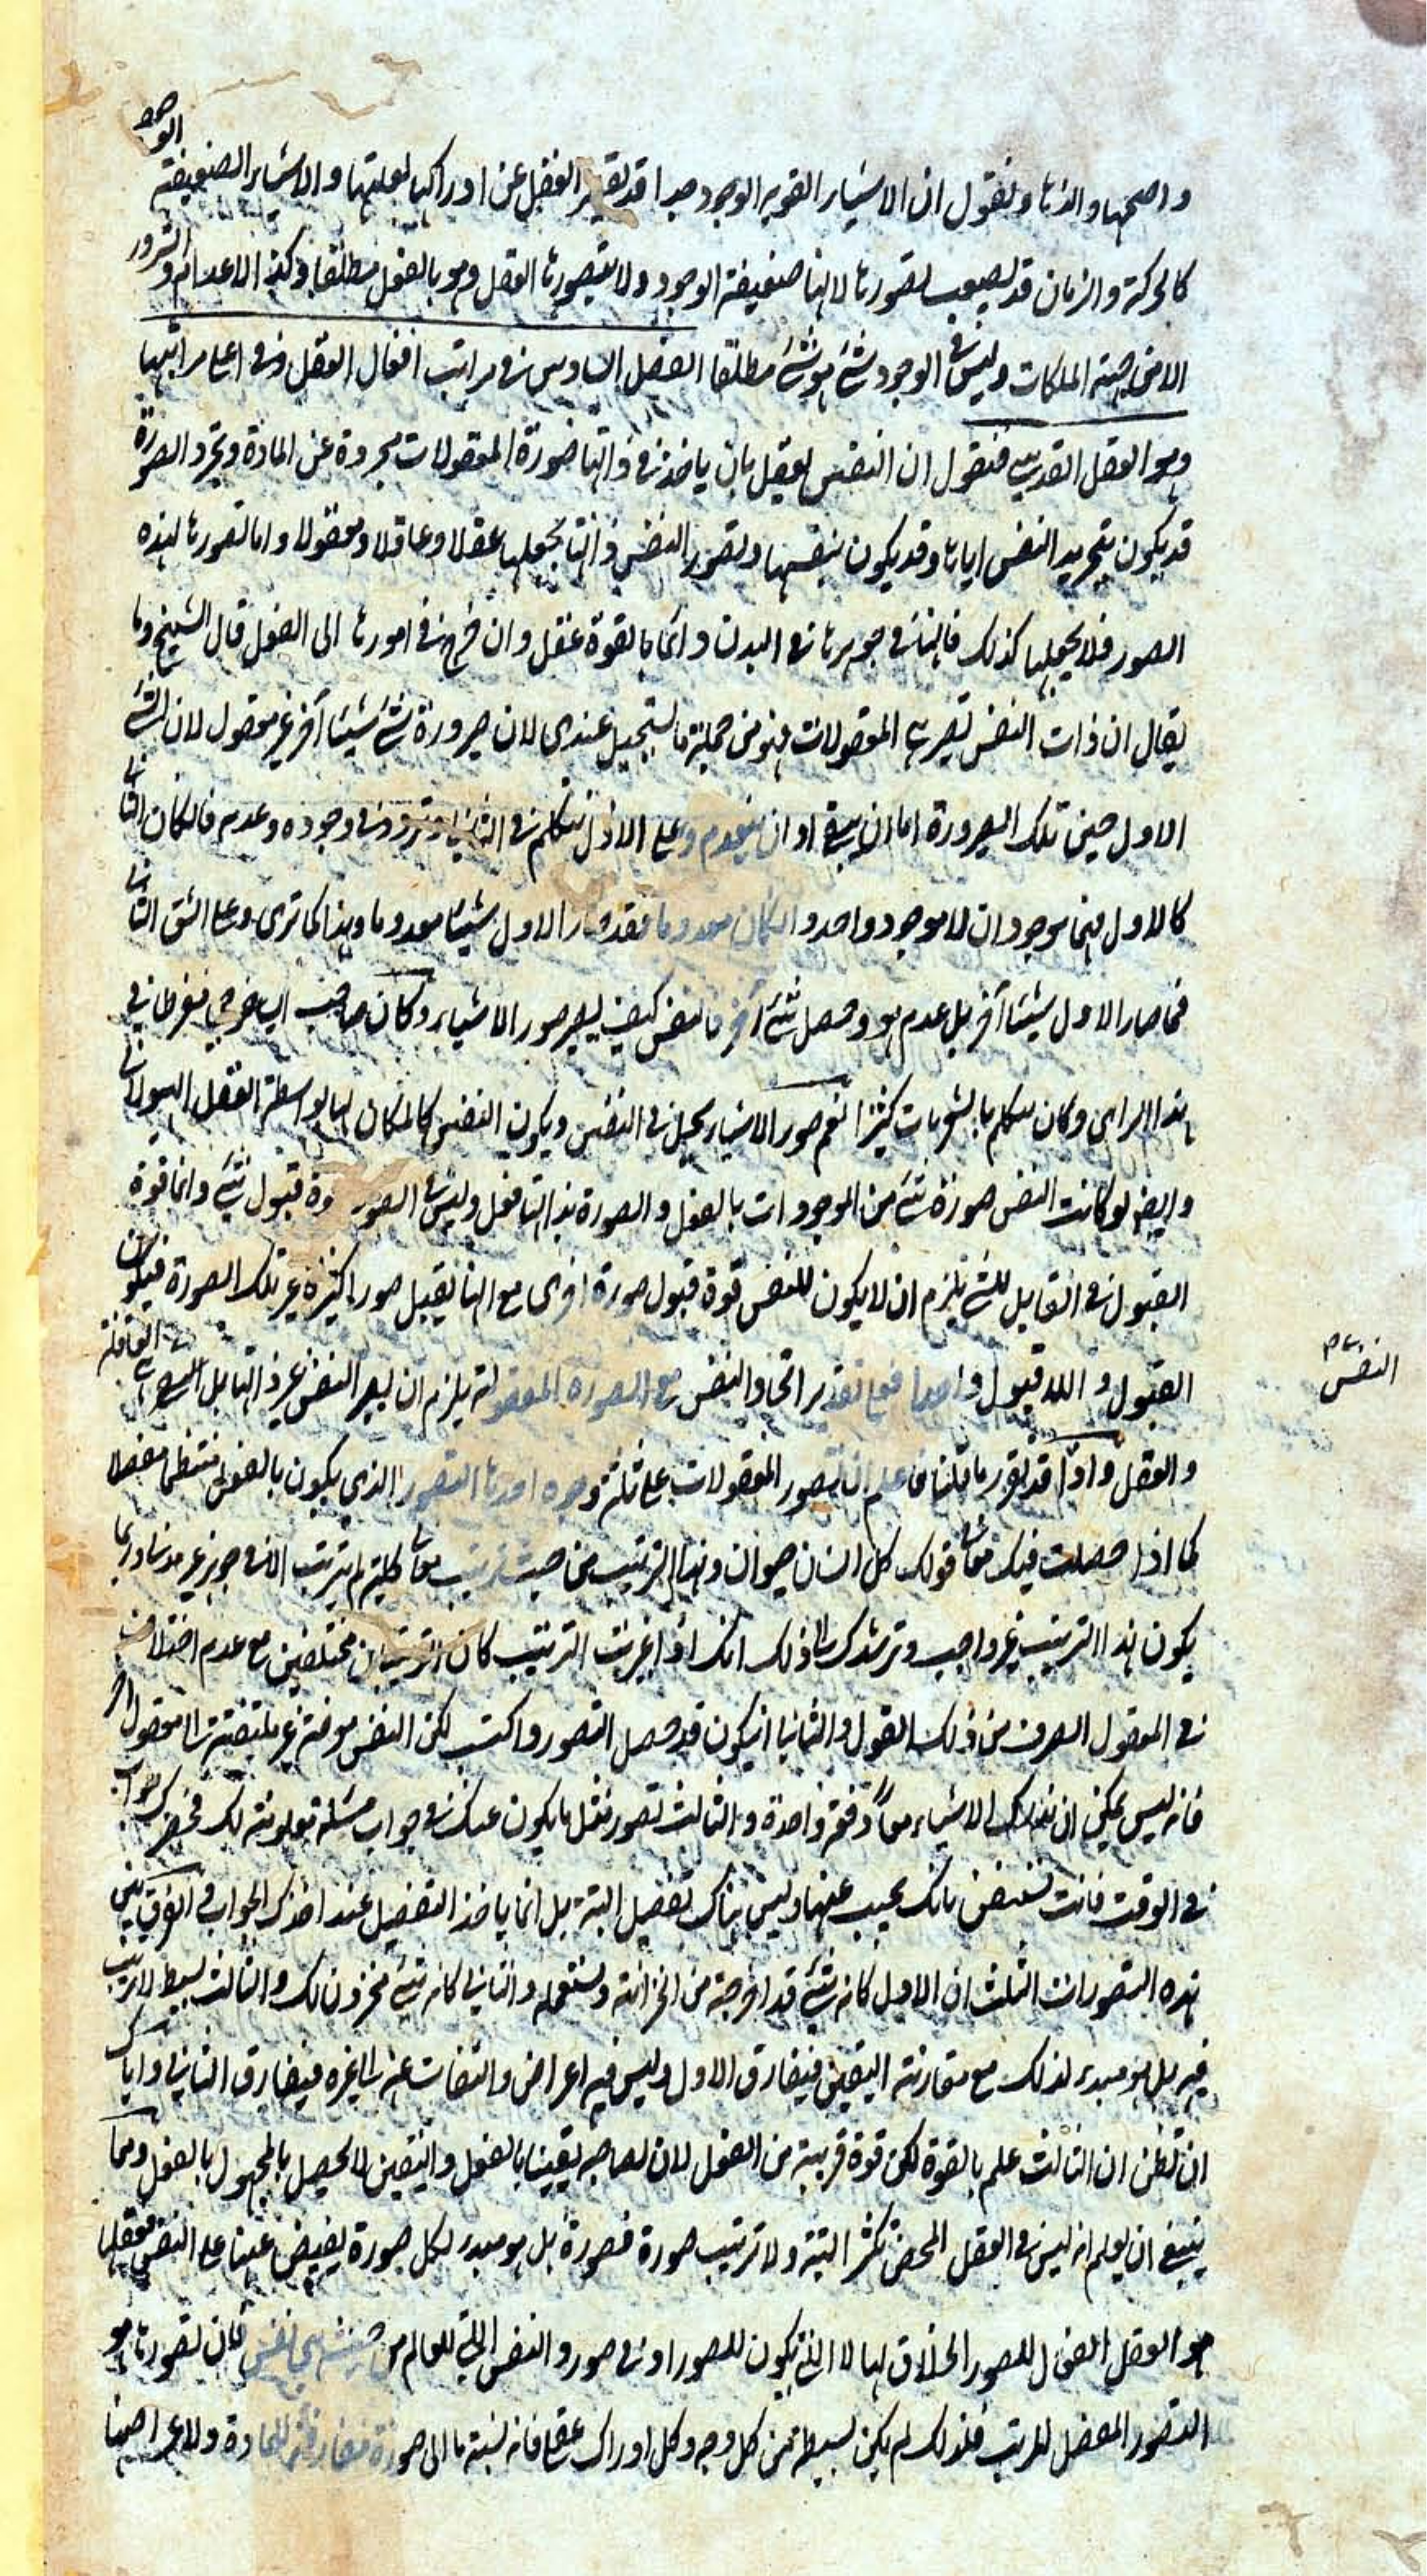 واصحها والذها ونقول ان الاشياء القوية الوجود جدا قد تقصر العقل عن ادراكها لغلبتها والاشياء الضعيفة الوجود
كالحركة والزمان قد يصعب تصورها لانها ضعيفة الوجود ولا يتصورها العقل وهو بالفعل مطلقا وكذا الاعدام والشرور
الا من جهة الملكات وليس في الوجود شئ هو شئ مطلقا الفصل السادس في مراتب افعال العقل وفى اعلى مراتبها
وهو العقل القدسي فنقول ان النفس تعقل بان ياخذ في ذاتها صورة المعقولات مجردة عن المادة وتجرد الصورة
قد يكون بتجريد النفس اياها وقد يكون بنفسها وتصور النفس ذاتها يجعلها عقلا وعاقلا ومعقولا واما تصورها لهذه
الصور فلا يجعلها كذلك فانها في جوهرها في البدن دائما بالقوة عقل وان خرج في امورها الى الفعل قال الشيخ وما
يقال ان ذات النفس تصير هي المعقولات فهو من جملة ما يستحيل عندى لان صيرورة شئ شيئا آخر غير معقول لان الشئ
الاول حين تلك الصيرورة اما ان يبقى او ان ينعدم وعلى الاول نتكلم في الثاني ونردد في وجوده وعدمه فان كان الثاني
كالاول فهما موجودان لا موجود واحد وان كان معدوما فقد صار الاول شيئا معدوما وهذا كما ترى وعلى الشق الثاني
فما صار الاول شيئا آخر بل عدم هو وحصل شئ آخر فالنفس كيف يصير صور الاشياء وكان صاحب ايساغوجي مفرطا في
هذا الراى وكان يتكلم بالشعريات كثيرا نعم صور الاشياء يحل في النفس ويكون النفس كالمكان لها بواسطة العقل الهيولاني
وايضا لو كانت النفس صورة شئ من الموجودات بالفعل والصورة بذاتها فعل وليس في الصورة قوة قبول شئ وانما قوة
القبول في القابل للشئ يلزم ان لا يكون للنفس قوة قبول صورة اخرى مع انها تقبل صورا كثيرة غير تلك الصورة فيكون
القبول واللاقبول واحدا فعلى تقدير اتحاد النفس مع الصورة المعقولة يلزم ان يصير النفس غير ذاتها بل النفس هي العاقلة
والعقل واذا قد تقرر ما قلنا فاعلم ان تصور المعقولات على ثلثة وجوه احدها التصور الذي يكون بالفعل منتظما مفصلا
كما اذا حصلت فيك معانى قولك كل انسان حيوان وهذا الترتيب من حيث ترتيب معانى كلية لم يترتب الا في جوهر غير مدنا وربما
يكون هذا الترتيب غير واجب وترشدك الى ذلك انك اذا غيرت الترتيب كان الترتيبان مختلفين مع عدم اختلاف
في المعقول الصرف من ذلك القول والثاني ان يكون قد حصل التصور واكتسب لكن النفس معرضة غير ملتفتة الى معقول آخر
فانه ليس يمكن ان تدرك الاشياء معا دفعة واحدة والثالث تصور مثل ما يكون عندك في جواب مسئلة معلومة لك فحضرك جوابها
في الوقت فانت تستيقن بانك تجيب عنها وليس هناك تفصيل البتة بل انما ياخذ التفصيل عند اخذك الجواب والفرق بين
هذه التصورات الثلث ان الاول كانه شئ قد اخرجته من الخزانة وتستعمله والثاني كانه شئ مخزون لك والثالث بسيط لا ترتيب
فيه بل هو مبدء لذلك مع مقارنة اليقين فيفارق الاول وليس فيه اعراض والتفات عنه الى غيره فيفارق الثاني واياك
ان تظن ان الثالث علم بالقوة لكن قوة قريبة من الفعل لان لصاحبه يقينا بالفعل واليقين لا يحصل بالمجهول بالفعل ومما
ينبغي ان يعلم انه ليس في العقل المحض تكثر البتة ولا ترتيب صورة فصورة بل هو مبدء لكل صورة يفيض عنها على النفس فعقلها
هو العقل الفعال للصور الخلاق لها لا الذي يكون للصور او في صور والنفس التي للعالم من حيث هي نفس فان تصورها هو
التصور المفصل المرتب فلذلك لم يكن بسيطة من كل وجه وكل ادراك عقلي فانه نسبة ما الى صورة مفارقة للمادة ولاعراضها
النفس